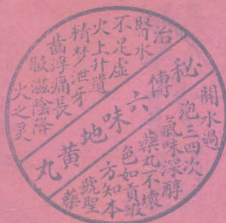 秘傳六味地黃丸
治
腎水
不足虛
火上升遺
精梦泄牙
齒浮痛長
服滋陰降
火之灵
開水過
泡三四次
氣味深醇
藥丸不壞
色如貢緞
方知本
號聖
藥